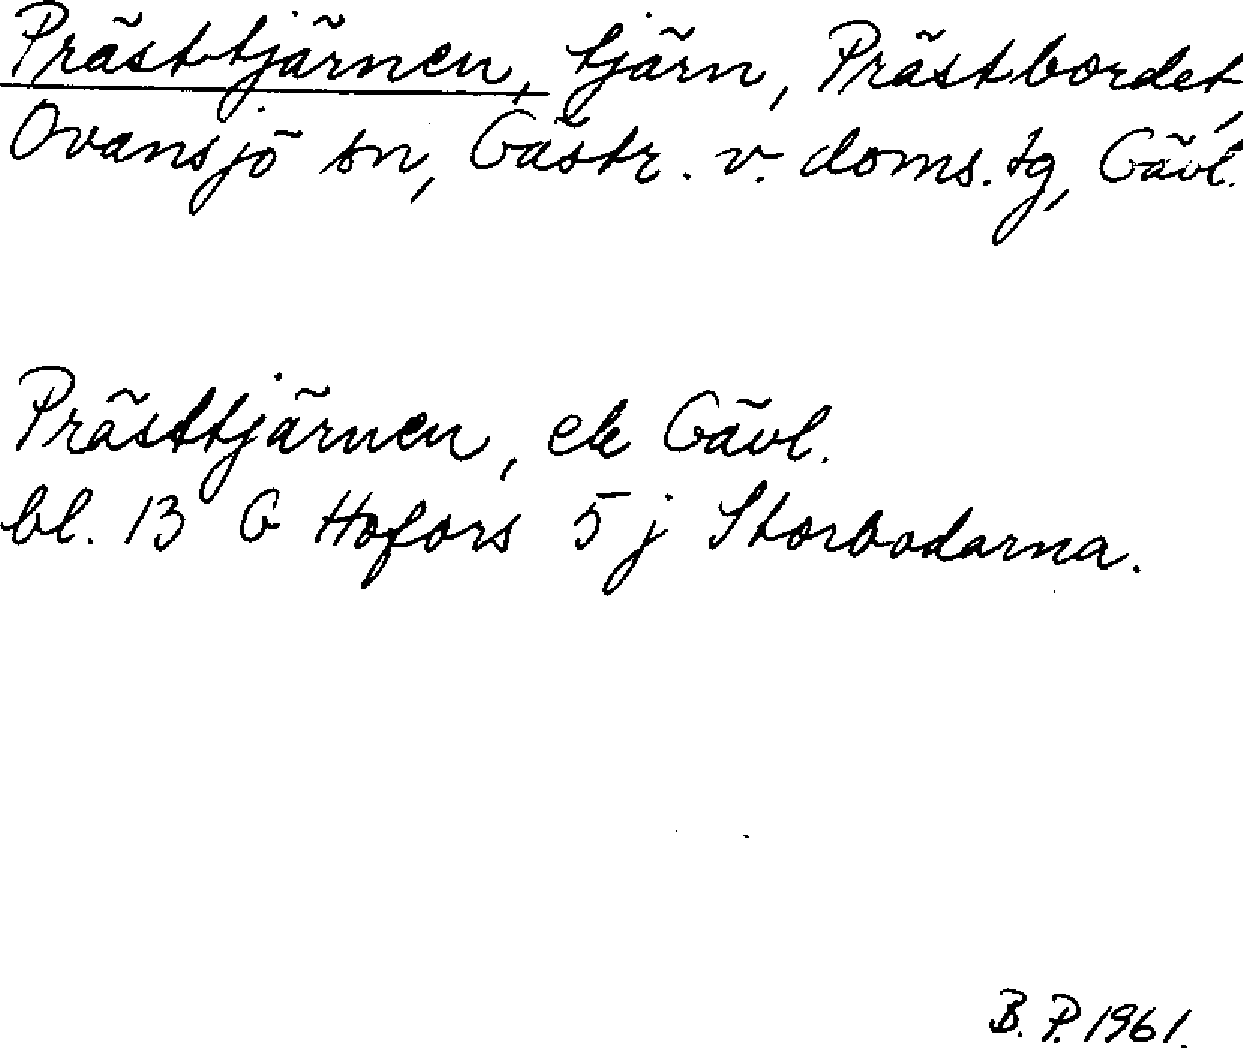 Prästtjärnen, tjärn, Prästbordet,
Ovansjö sn, Gästr. v. doms. tg, Gävl.
Prästtjärnen, ek Gävl.
bl. 13 G Hofors 5 j Storbodarna.
B. P. 1961.